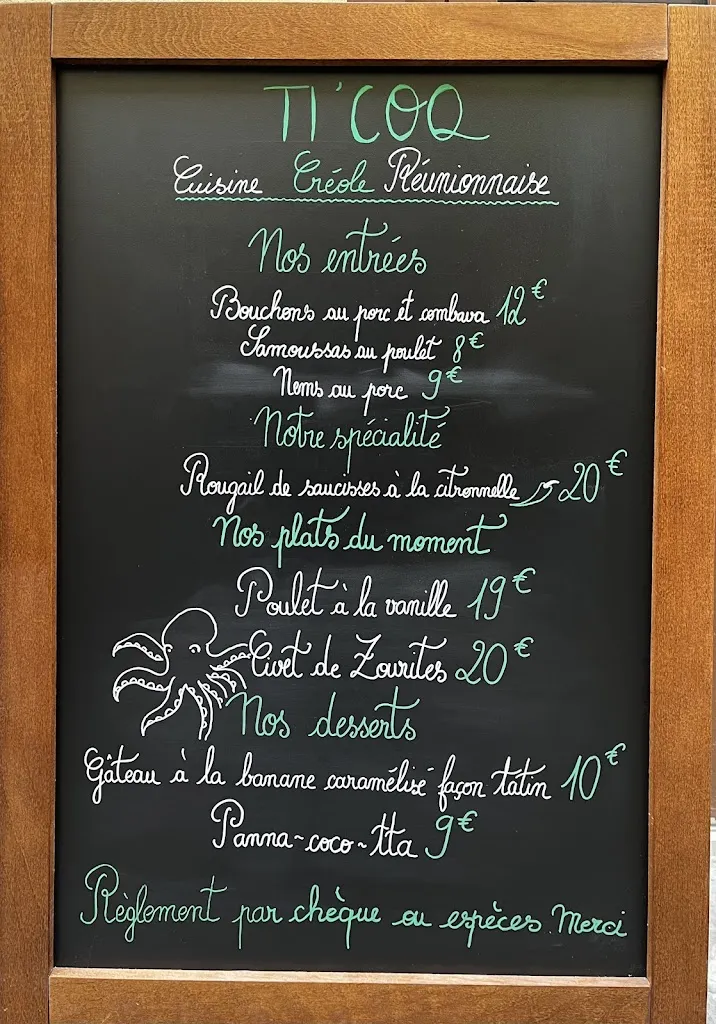 TI'COQ
Cuisine Créole Réunionnaise
Nos entrées
Bouchons au porc et combava 12€
Samoussas au poulet 8€
Nems au porc 9€
Notre spécialité
Rougail de saucisses à la citronnelle 20€
Nos plats du moment
Poulet à la vanille 19€
Civet de Zourites 20€
Nos desserts
Gâteau à la banane caramélisé façon tatin 10€
Panna~coco~tta 9€
Règlement par chèque ou espèces. Merci